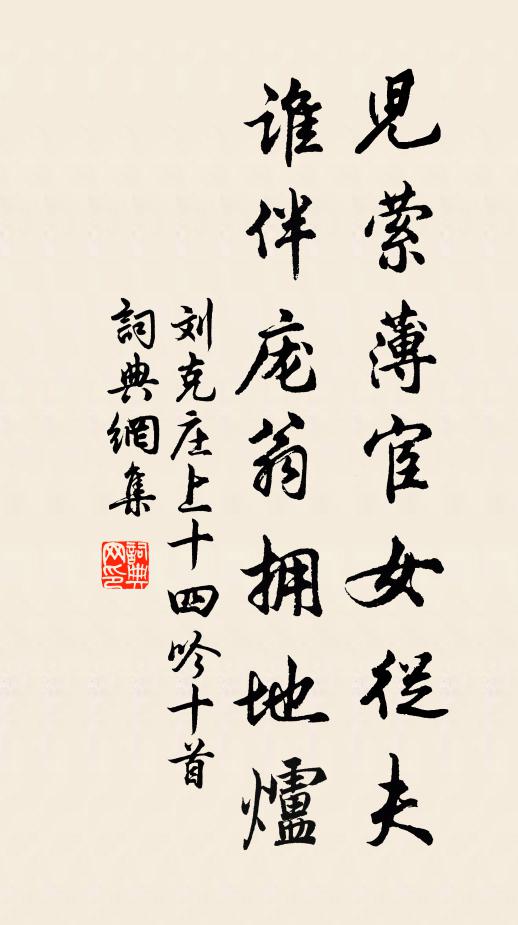 児萦薄宦女從夫
谁伴庞翁拥地爐
刘克庄上十四吟十首
詞典網集
詞典网印